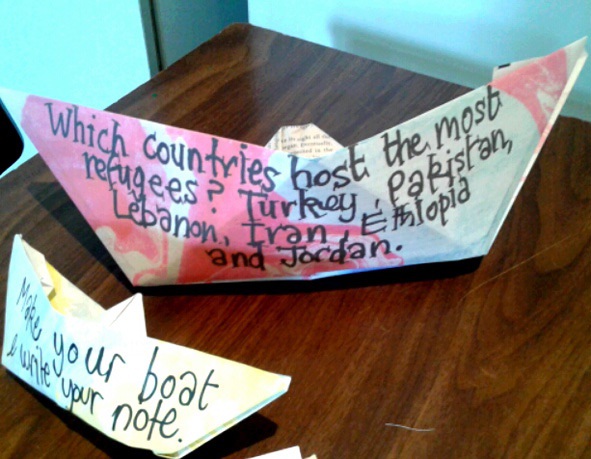 Which countries host the most
refugees? Turkey, Pakistan,
Lebanon, Iran, Ethiopia
and Jordan.
Make your boat
& write your note.